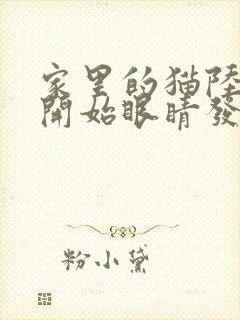 家里的猫陸
開始眼睛發
粉小黛